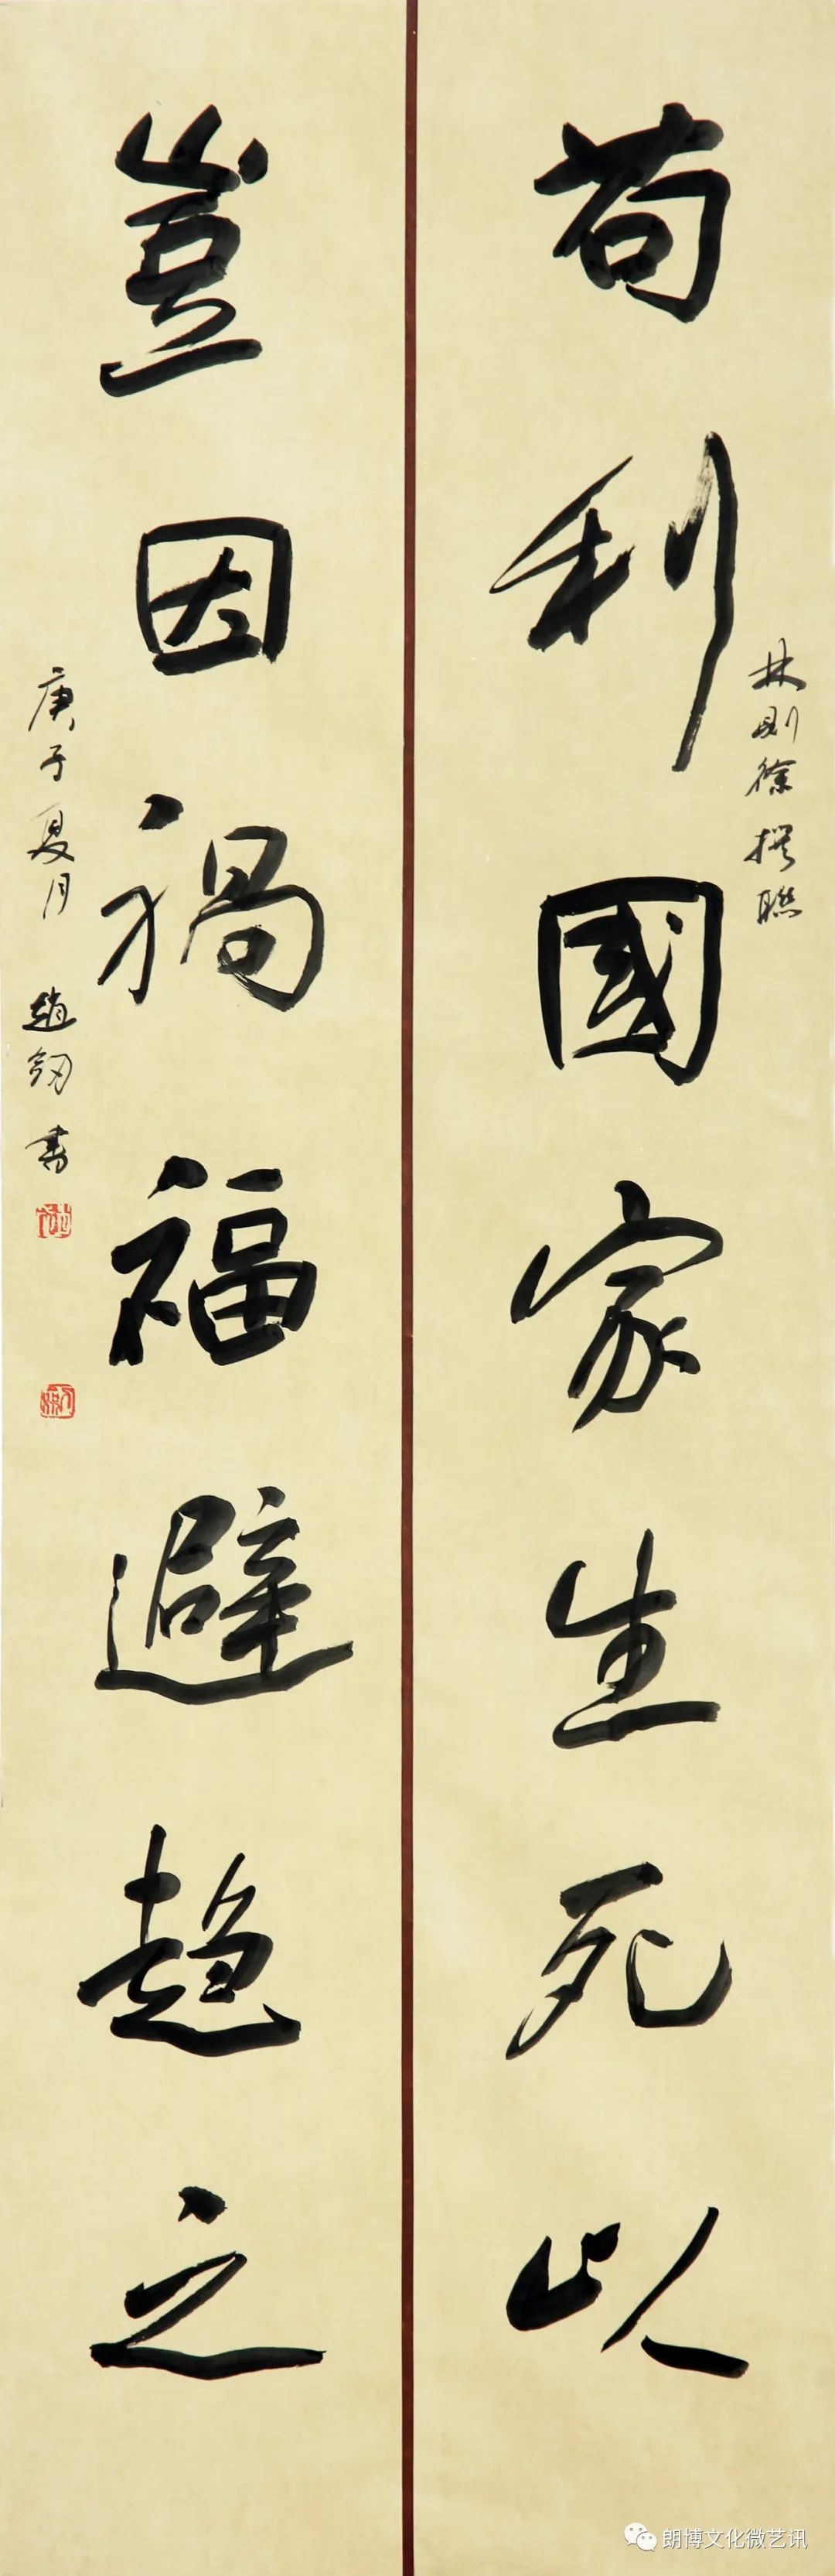 苟利國家生死以
林则徐撰聯
豈因禍福避趨之
庚子夏月 趙釰書
朗博文化微艺讯